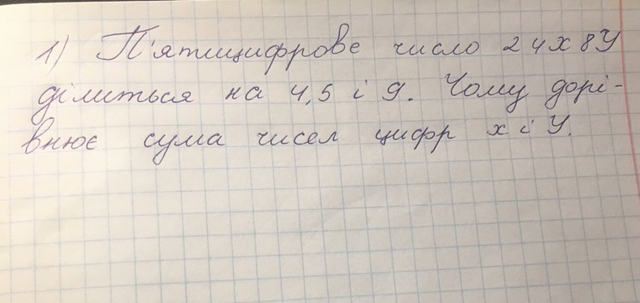 1) П'ятицифрове число 24х8У
ділиться на 4,5 і 9. Чому дорі-
внює сума чисел цифр х і У.